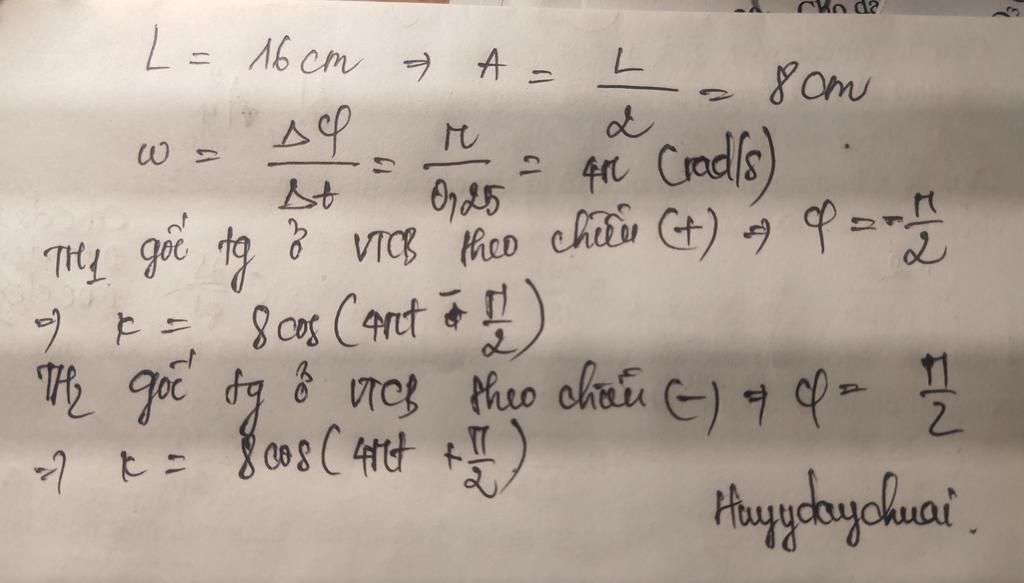 cho dε
L = 16 cm ⇒ A = L/2 = 8 cm
ω = Δφ/Δt = π/0,25 = 4π (rad/s)
TH1 gốc tg ở VTCB theo chiều (+) ⇒ φ = -π/2
⇒ x = 8cos(4πt - π/2)
TH2 gốc tg ở VTCB theo chiều (-) ⇒ φ = π/2
⇒ x = 8cos(4πt + π/2)
Huyydaychuai.